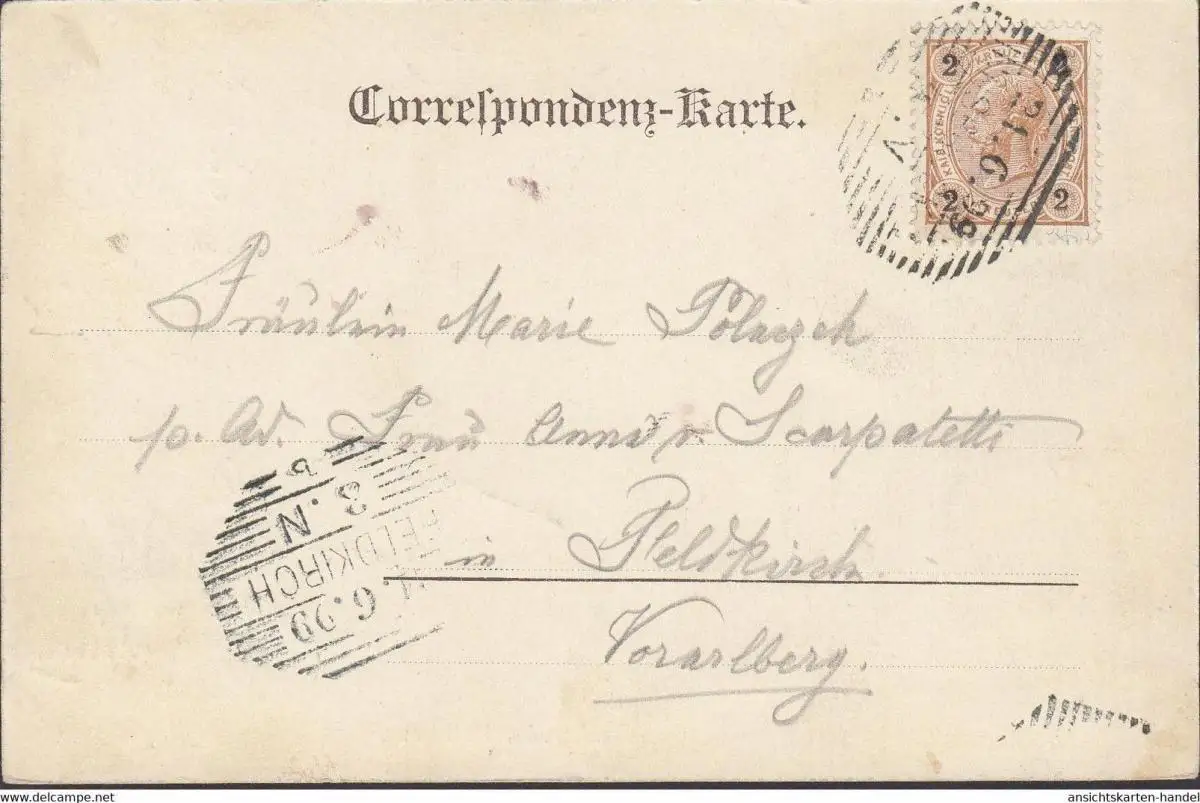 Correspondenz-Karte.
2 2
2 2
Fräulein Marie
p. Ad. Frau Anna v. Scarpatetti
in Feldkirch.
Vorarlberg.
8. N
FELDKIRCH
.6.99
https://www.delcampe.net
ansichtskarten-handel